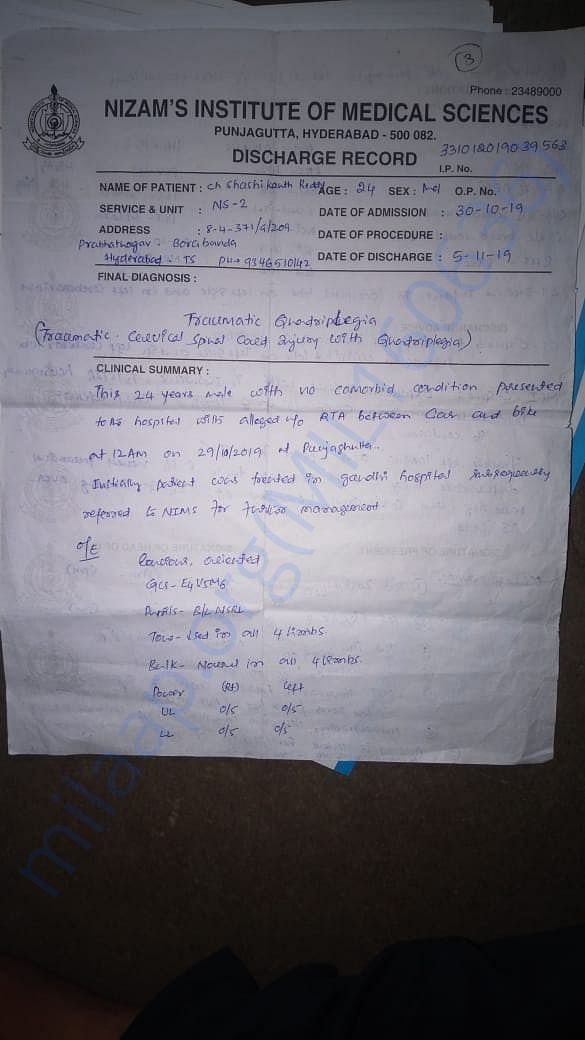 3
Phone : 23489000
NIZAM'S INSTITUTE OF MEDICAL SCIENCES
PUNJAGUTTA, HYDERABAD - 500 082.
DISCHARGE RECORD
331012019039563
I.P. No.
NAME OF PATIENT : ch Shashi kanth Reddy AGE : 24 SEX : Mal O.P. No.
SERVICE & UNIT : NS-2 DATE OF ADMISSION : 30-10-19
ADDRESS : 8-4-371/a/209 DATE OF PROCEDURE :
Prabhatnagar Borabanda
Hyderabad TS PH 9346510142 DATE OF DISCHARGE : 5-11-19
FINAL DIAGNOSIS :
Traumatic Quadriplegia
(Traumatic Cervical Spinal Cord Injury with Quadriplegia)
CLINICAL SUMMARY :
This 24 years male with no comorbid condition presented
to hospital with alleged h/o RTA between Car and bike
at 12AM on 29/10/2019 at Punjagutta.
Initially patient was treated in gandhi hospital
referred to NIMS for further management.
O/E
Concious, oriented
GCS - E4V5M6
Pupils - B/L NSRL
Tone - in all 4 limbs
Bulk - Normal in all 4 limbs
Power (Rt) Left
UL 0/5 0/5
LL 0/5 0/5